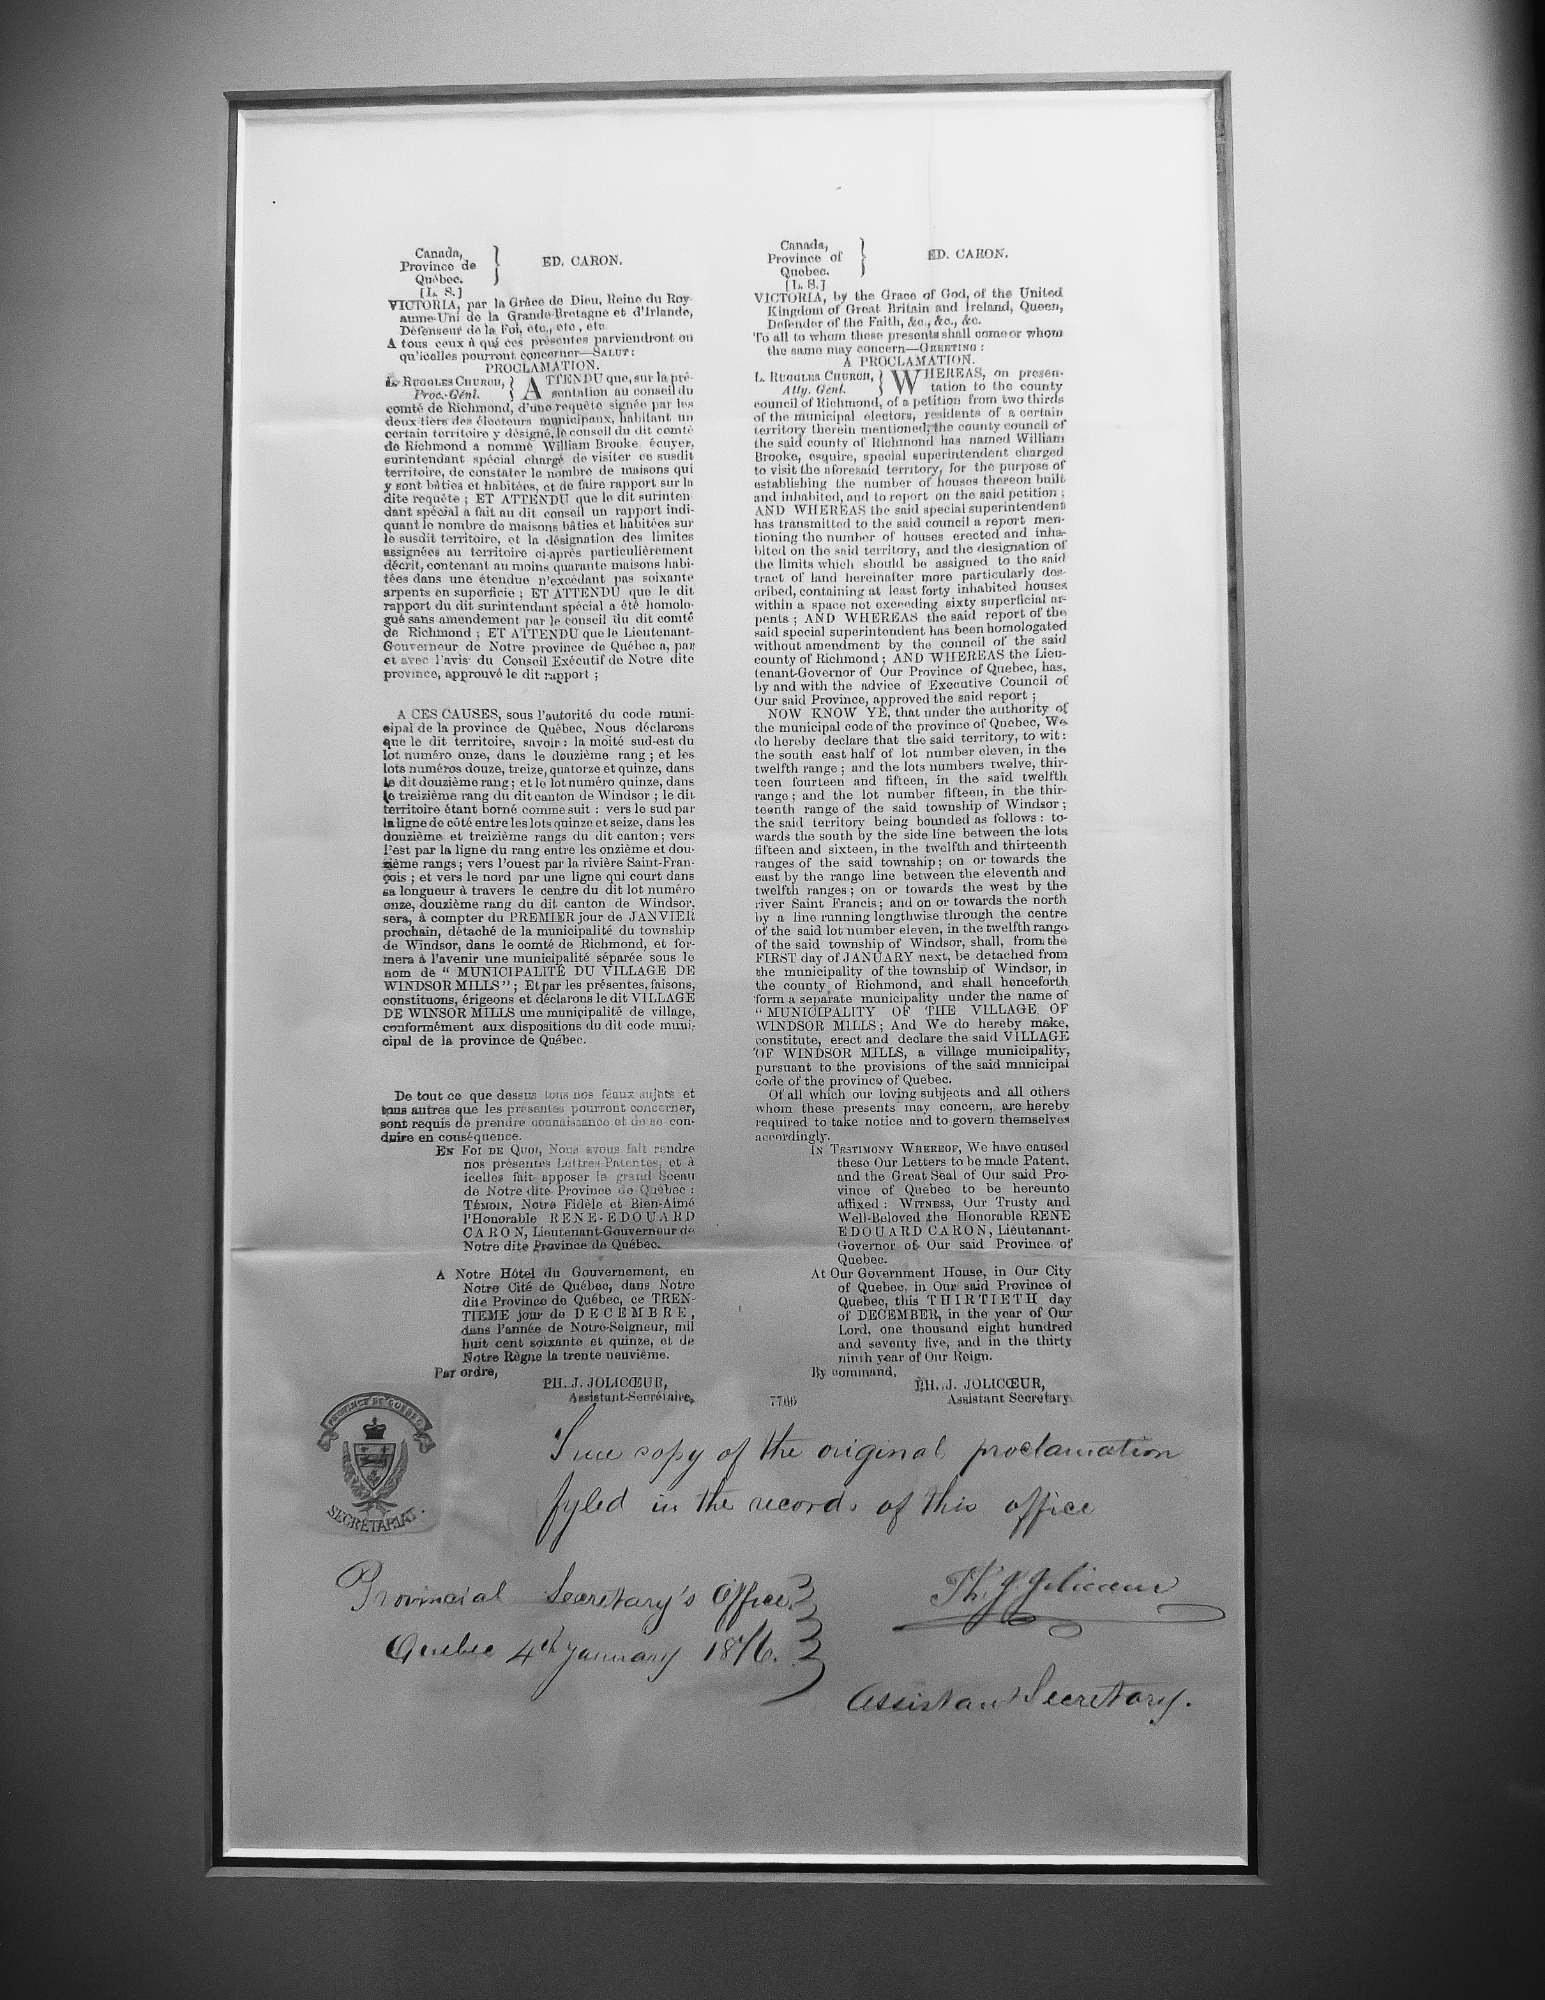 Canada,
Province de
Québec.
[L. S.]
ED. CARON.
VICTORIA, par la Grâce de Dieu, Reine du Roy-
aume-Uni de la Grande-Bretagne et d'Irlande,
Défenseur de la Foi, etc., etc , etc
A tous ceux à qui ces présentes parviendront ou
qu'icelles pourront concerner—SALUT:
PROCLAMATION.
L. RUGGLES CHURCH,
Proc.-Génl.
ATTENDU que, sur la pré-
sentation au conseil du
comté de Richmond, d'une requête signée par les
deux tiers des électeurs municipaux, habitant un
certain territoire y désigné, le conseil du dit comté
de Richmond a nommé William Brooke écuyer,
surintendant spécial chargé de visiter ce susdit
territoire, de constater le nombre de maisons qui
y sont bâties et habitées, et de faire rapport sur la
dite requête ; ET ATTENDU que le dit surinten
dant spécial a fait au dit conseil un rapport indi-
quant le nombre de maisons bâties et habitées sur
le susdit territoire, et la désignation des limites
assignées au territoire ci-après particulièrement
décrit, contenant au moins quarante maisons habi-
tées dans une étendue n'excédant pas soixante
arpents en superficie ; ET ATTENDU que le dit
rapport du dit surintendant spécial a été homolo-
gué sans amendement par le conseil du dit comté
de Richmond ; ET ATTENDU que le Lieutenant-
Gouverneur de Notre province de Québec a, par
et avec l'avis du Conseil Exécutif de Notre dite
province, approuvé le dit rapport ;
A CES CAUSES, sous l'autorité du code muni-
cipal de la province de Québec, Nous déclarons
que le dit territoire, savoir : la moité sud-est du
lot numéro onze, dans le douzième rang ; et les
lots numéros douze, treize, quatorze et quinze, dans
le dit douzième rang ; et le lot numéro quinze, dans
le treizième rang du dit canton de Windsor ; le dit
territoire étant borné comme suit : vers le sud par
la ligne de côté entre les lots quinze et seize, dans les
douzième et treizième rangs du dit canton ; vers
l'est par la ligne du rang entre les onzième et dou-
zième rangs ; vers l'ouest par la rivière Saint-Fran-
çois ; et vers le nord par une ligne qui court dans
sa longueur à travers le centre du dit lot numéro
onze, douzième rang du dit canton de Windsor,
sera, à compter du PREMIER jour de JANVIER
prochain, détaché de la municipalité du township
de Windsor, dans le comté de Richmond, et for-
mera à l'avenir une municipalité séparée sous le
nom de " MUNICIPALITÉ DU VILLAGE DE
WINDSOR MILLS" ; Et par les présentes, faisons,
constituons, érigeons et déclarons le dit VILLAGE
DE WINSOR MILLS une municipalité de village,
conformément aux dispositions du dit code muni-
cipal de la province de Québec.
De tout ce que dessus tous nos feaux sujets et
tous autres que les présentes pourront concerner,
sont requis de prendre connaissance et de se con-
duire en conséquence.
EN FOI DE QUOI, Nous avons fait rendre
nos présentes Lettres-Patentes, et à
icelles fait apposer le grand Sceau
de Notre dite Province de Québec :
TÉMOIN, Notre Fidèle et Bien-Aimé
l'Honorable RENE-EDOUARD
CARON, Lieutenant-Gouverneur de
Notre dite Province de Québec.
A Notre Hôtel du Gouvernement, en
Notre Cité de Québec, dans Notre
dite Province de Québec, ce TREN-
TIEME jour de DECEMBRE,
dans l'année de Notre-Seigneur, mil
huit cent soixante et quinze, et de
Notre Règne la trente neuvième.
Par ordre,
PH. J. JOLICŒUR,
Assistant-Secrétaire,
Canada,
Province of
Quebec.
[L. S.]
ED. CARON.
VICTORIA, by the Grace of God, of the United
Kingdom of Great Britain and Ireland, Queen,
Defender of the Faith, &c., &c., &c.
To all to whom these presents shall come or whom
the same may concern—GREETING :
A PROCLAMATION.
L. RUGGLES CHURCH,
Atty. Genl.
WHEREAS, on presen-
tation to the county
council of Richmond, of a petition from two thirds
of the municipal electors, residents of a certain
territory therein mentioned, the county council of
the said county of Richmond has named William
Brooke, esquire, special superintendent charged
to visit the aforesaid territory, for the purpose of
establishing the number of houses thereon built
and inhabited, and to report on the said petition ;
AND WHEREAS the said special superintendent
has transmitted to the said council a report men-
tioning the number of houses erected and inha-
bited on the said territory, and the designation of
the limits which should be assigned to the said
tract of land hereinafter more particularly des-
cribed, containing at least forty inhabited houses
within a space not exceeding sixty superficial ar-
pents ; AND WHEREAS the said report of the
said special superintendent has been homologated
without amendment by the council of the said
county of Richmond ; AND WHEREAS the Lieu-
tenant-Governor of Our Province of Quebec, has,
by and with the advice of Executive Council of
Our said Province, approved the said report ;
NOW KNOW YE, that under the authority of
the municipal code of the province of Quebec, We
do hereby declare that the said territory, to wit :
the south east half of lot number eleven, in the
twelfth range ; and the lots numbers twelve, thir-
teen fourteen and fifteen, in the said twelfth
range ; and the lot number fifteen, in the thir-
teenth range of the said township of Windsor ;
the said territory being bounded as follows : to-
wards the south by the side line between the lots
fifteen and sixteen, in the twelfth and thirteenth
ranges of the said township ; on or towards the
east by the range line between the eleventh and
twelfth ranges ; on or towards the west by the
river Saint Francis ; and on or towards the north
by a line running lengthwise through the centre
of the said lot number eleven, in the twelfth range
of the said township of Windsor, shall, from the
FIRST day of JANUARY next, be detached from
the municipality of the township of Windsor, in
the county of Richmond, and shall henceforth
form a separate municipality under the name of
" MUNICIPALITY OF THE VILLAGE OF
WINDSOR MILLS ; And We do hereby make,
constitute, erect and declare the said VILLAGE
OF WINDSOR MILLS, a village municipality,
pursuant to the provisions of the said municipal
code of the province of Quebec.
Of all which our loving subjects and all others
whom these presents may concern, are hereby
required to take notice and to govern themselves
accordingly.
IN TESTIMONY WHEREOF, We have caused
these Our Letters to be made Patent,
and the Great Seal of Our said Pro-
vince of Quebec to be hereunto
affixed : WITNESS, Our Trusty and
Well-Beloved the Honorable RENE
EDOUARD CARON, Lieutenant-
Governor of Our said Province of
Quebec.
At Our Government House, in Our City
of Quebec, in Our said Province of
Quebec, this THIRTIETH day
of DECEMBER, in the year of Our
Lord, one thousand eight hundred
and seventy five, and in the thirty
ninth year of Our Reign.
By command,
PH. J. JOLICŒUR,
7766
Assistant Secretary
PROVINCE DE QUEBEC
SECRÉTARIAT.
True copy of the original proclamation
fyled in the records of this office
Provincial Secretary's Office
Quebec 4th January 1876.
Ph. J Jolicoeur
Assistant Secretary.